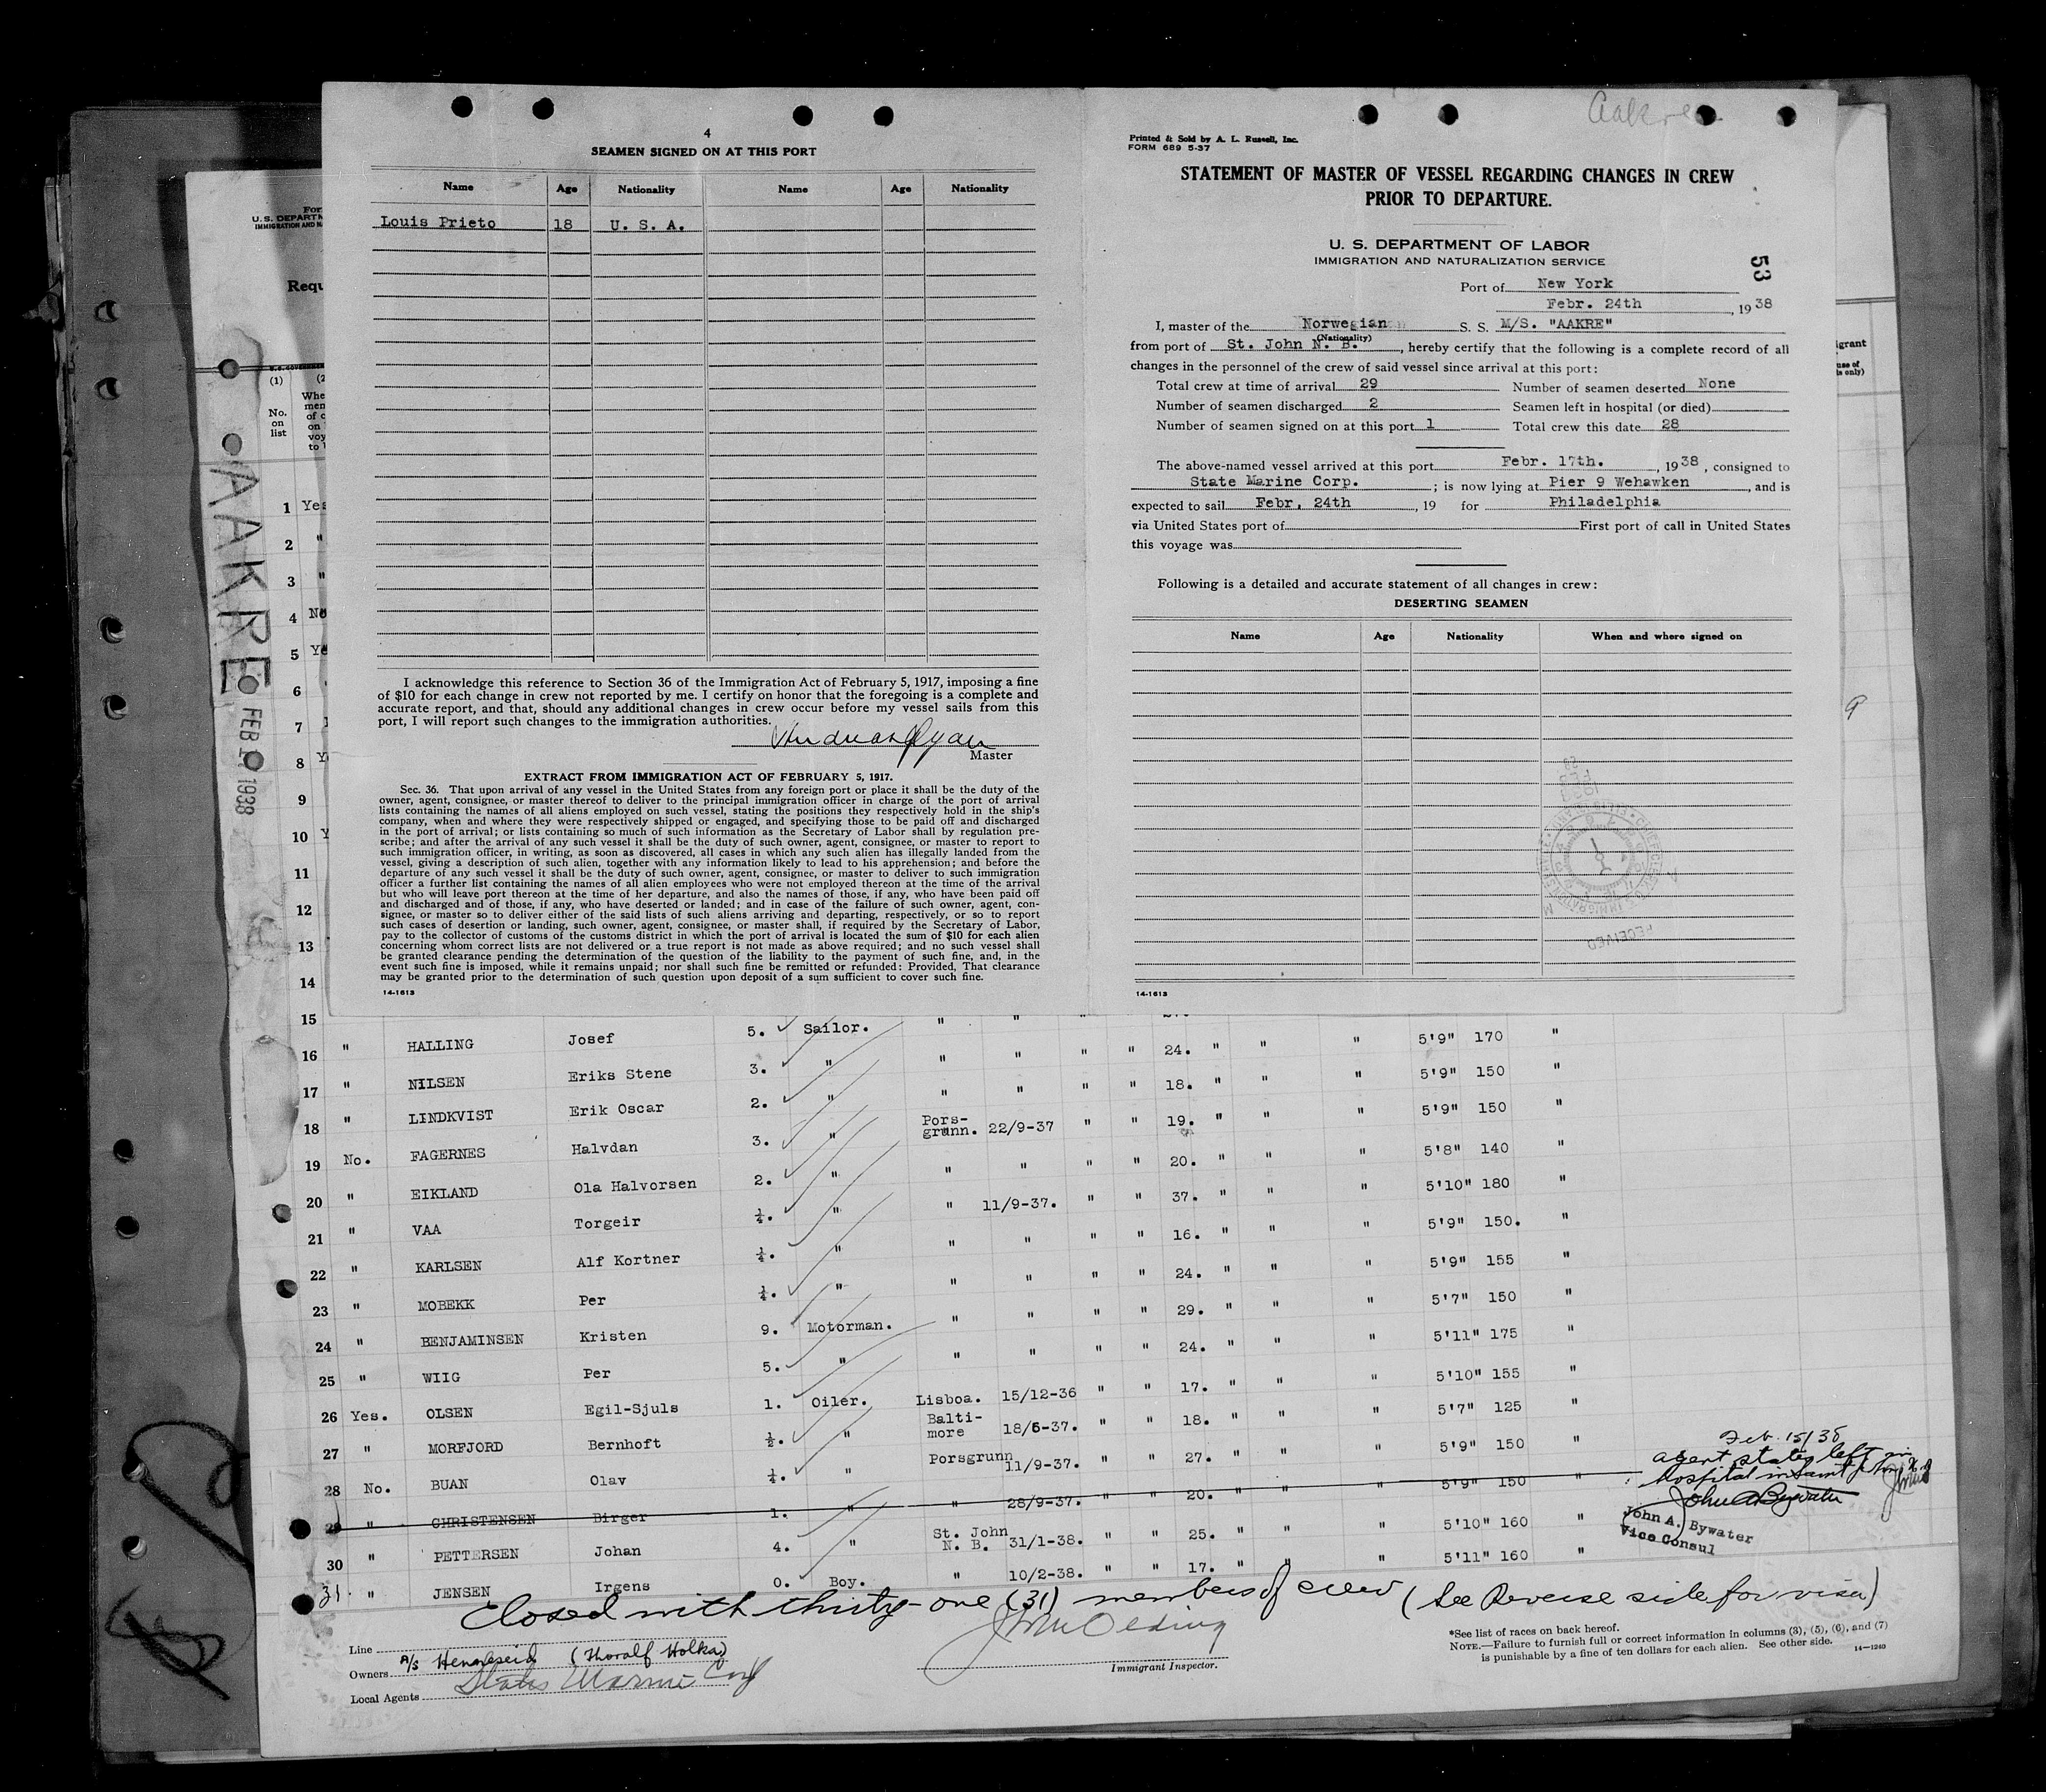 4
SEAMEN SIGNED ON AT THIS PORT
Name Age Nationality Name Age Nationality
Louis Prieto 18 U. S. A.
I acknowledge this reference to Section 36 of the Immigration Act of February 5, 1917, imposing a fine
of $10 for each change in crew not reported by me. I certify on honor that the foregoing is a complete and
accurate report, and that, should any additional changes in crew occur before my vessel sails from this
port, I will report such changes to the immigration authorities.
Master
EXTRACT FROM IMMIGRATION ACT OF FEBRUARY 5, 1917.
Sec. 36. That upon arrival of any vessel in the United States from any foreign port or place it shall be the duty of the
owner, agent, consignee, or master thereof to deliver to the principal immigration officer in charge of the port of arrival
lists containing the names of all aliens employed on such vessel, stating the positions they respectively hold in the ship's
company, when and where they were respectively shipped or engaged, and specifying those to be paid off and discharged
in the port of arrival; or lists containing so much of such information as the Secretary of Labor shall by regulation pre-
scribe; and after the arrival of any such vessel it shall be the duty of such owner, agent, consignee, or master to report to
such immigration officer, in writing, as soon as discovered, all cases in which any such alien has illegally landed from the
vessel, giving a description of such alien, together with any information likely to lead to his apprehension; and before the
departure of any such vessel it shall be the duty of such owner, agent, consignee, or master to deliver to such immigration
officer a further list containing the names of all alien employees who were not employed thereon at the time of the arrival
but who will leave port thereon at the time of her departure, and also the names of those, if any, who have been paid off
and discharged and of those, if any, who have deserted or landed; and in case of the failure of such owner, agent, con-
signee, or master so to deliver either of the said lists of such aliens arriving and departing, respectively, or so to report
such cases of desertion or landing, such owner, agent, consignee, or master shall, if required by the Secretary of Labor,
pay to the collector of customs of the customs district in which the port of arrival is located the sum of $10 for each alien
concerning whom correct lists are not delivered or a true report is not made as above required; and no such vessel shall
be granted clearance pending the determination of the question of the liability to the payment of such fine, and, in the
event such fine is imposed, while it remains unpaid; nor shall such fine be remitted or refunded: Provided, That clearance
may be granted prior to the determination of such question upon deposit of a sum sufficient to cover such fine.
14-1613
Aakre
Printed & Sold by A. L. Russell, Inc.
FORM 689 5-37
STATEMENT OF MASTER OF VESSEL REGARDING CHANGES IN CREW
PRIOR TO DEPARTURE.
U. S. DEPARTMENT OF LABOR
IMMIGRATION AND NATURALIZATION SERVICE
53
Port of New York
Febr. 24th, 1938
I, master of the Norwegian S. S. M/S. "AAKRE"
(Nationality)
from port of St. John N. B., hereby certify that the following is a complete record of all
changes in the personnel of the crew of said vessel since arrival at this port:
Total crew at time of arrival 29 Number of seamen deserted None
Number of seamen discharged 2 Seamen left in hospital (or died)
Number of seamen signed on at this port 1 Total crew this date 28
The above-named vessel arrived at this port Febr. 17th., 1938, consigned to
State Marine Corp.; is now lying at Pier 9 Wehawken, and is
expected to sail Febr. 24th, 19 for Philadelphia
via United States port of First port of call in United States
this voyage was
Following is a detailed and accurate statement of all changes in crew:
DESERTING SEAMEN
Name Age Nationality When and where signed on
RECEIVED
14-1613
U. S. DEPARTM
Requ
(1) (2
No.
on
list
AAKRE
FEB 1938
1 Yes
2 "
3 "
4 No
5 Ye
6
7
8 Y
9
10 Y
11
12
13
14
15
16 " HALLING Josef 5. Sailor. " " " " 24. " " " 5'9" 170 "
17 " NILSEN Eriks Stene 3. " " " " " 18. " " " 5'9" 150 "
18 " LINDKVIST Erik Oscar 2. " Pors-grunn. 22/9-37 " " 19. " " " 5'9" 150 "
19 No. FAGERNES Halvdan 3. " " " " " 20. " " " 5'8" 140 "
20 " EIKLAND Ola Halvorsen 2. " " 11/9-37. " " 37. " " " 5'10" 180 "
21 " VAA Torgeir ¼. " " " " " 16. " " " 5'9" 150. "
22 " KARLSEN Alf Kortner ¼. " " " " " 24. " " " 5'9" 155 "
23 " MOBEKK Per ¼. " " " " " 29. " " " 5'7" 150 "
24 " BENJAMINSEN Kristen 9. Motorman. " " " " 24. " " " 5'11" 175 "
25 " WIIG Per 5. " Lisboa. 15/12-36 " " 17. " " " 5'10" 155 "
26 Yes. OLSEN Egil-Sjuls 1. Oiler. Balti-more 18/5-37. " " 18. " " " 5'7" 125 "
27 " MORFJORD Bernhoft ½. " Porsgrunn 11/9-37. " " 27. " " " 5'9" 150 "
28 No. BUAN Olav ¼. " " 28/9-37. " " 20. " " " 5'9" 150 "
29 " CHRISTENSEN Birger 1. "
30 " PETTERSEN Johan 4. " St. John N. B. 31/1-38. " " 25. " " " 5'10" 160 "
31. " JENSEN Irgens 0. Boy. " 10/2-38. " " 17. " " " 5'11" 160 "
Feb. 15/38
agent states left in
Hospital in Saint John N.B.
John A Bywater
John A. Bywater
Vice Consul
Closed with thirty-one (31) members of crew (See Reverse side for visa)
Line
Owners A/S Henneseid (Thoralf Holka)
Local Agents States Marine Corp
Immigrant Inspector.
*See list of races on back hereof.
NOTE.—Failure to furnish full or correct information in columns (3), (5), (6), and (7)
is punishable by a fine of ten dollars for each alien. See other side. 14—1240